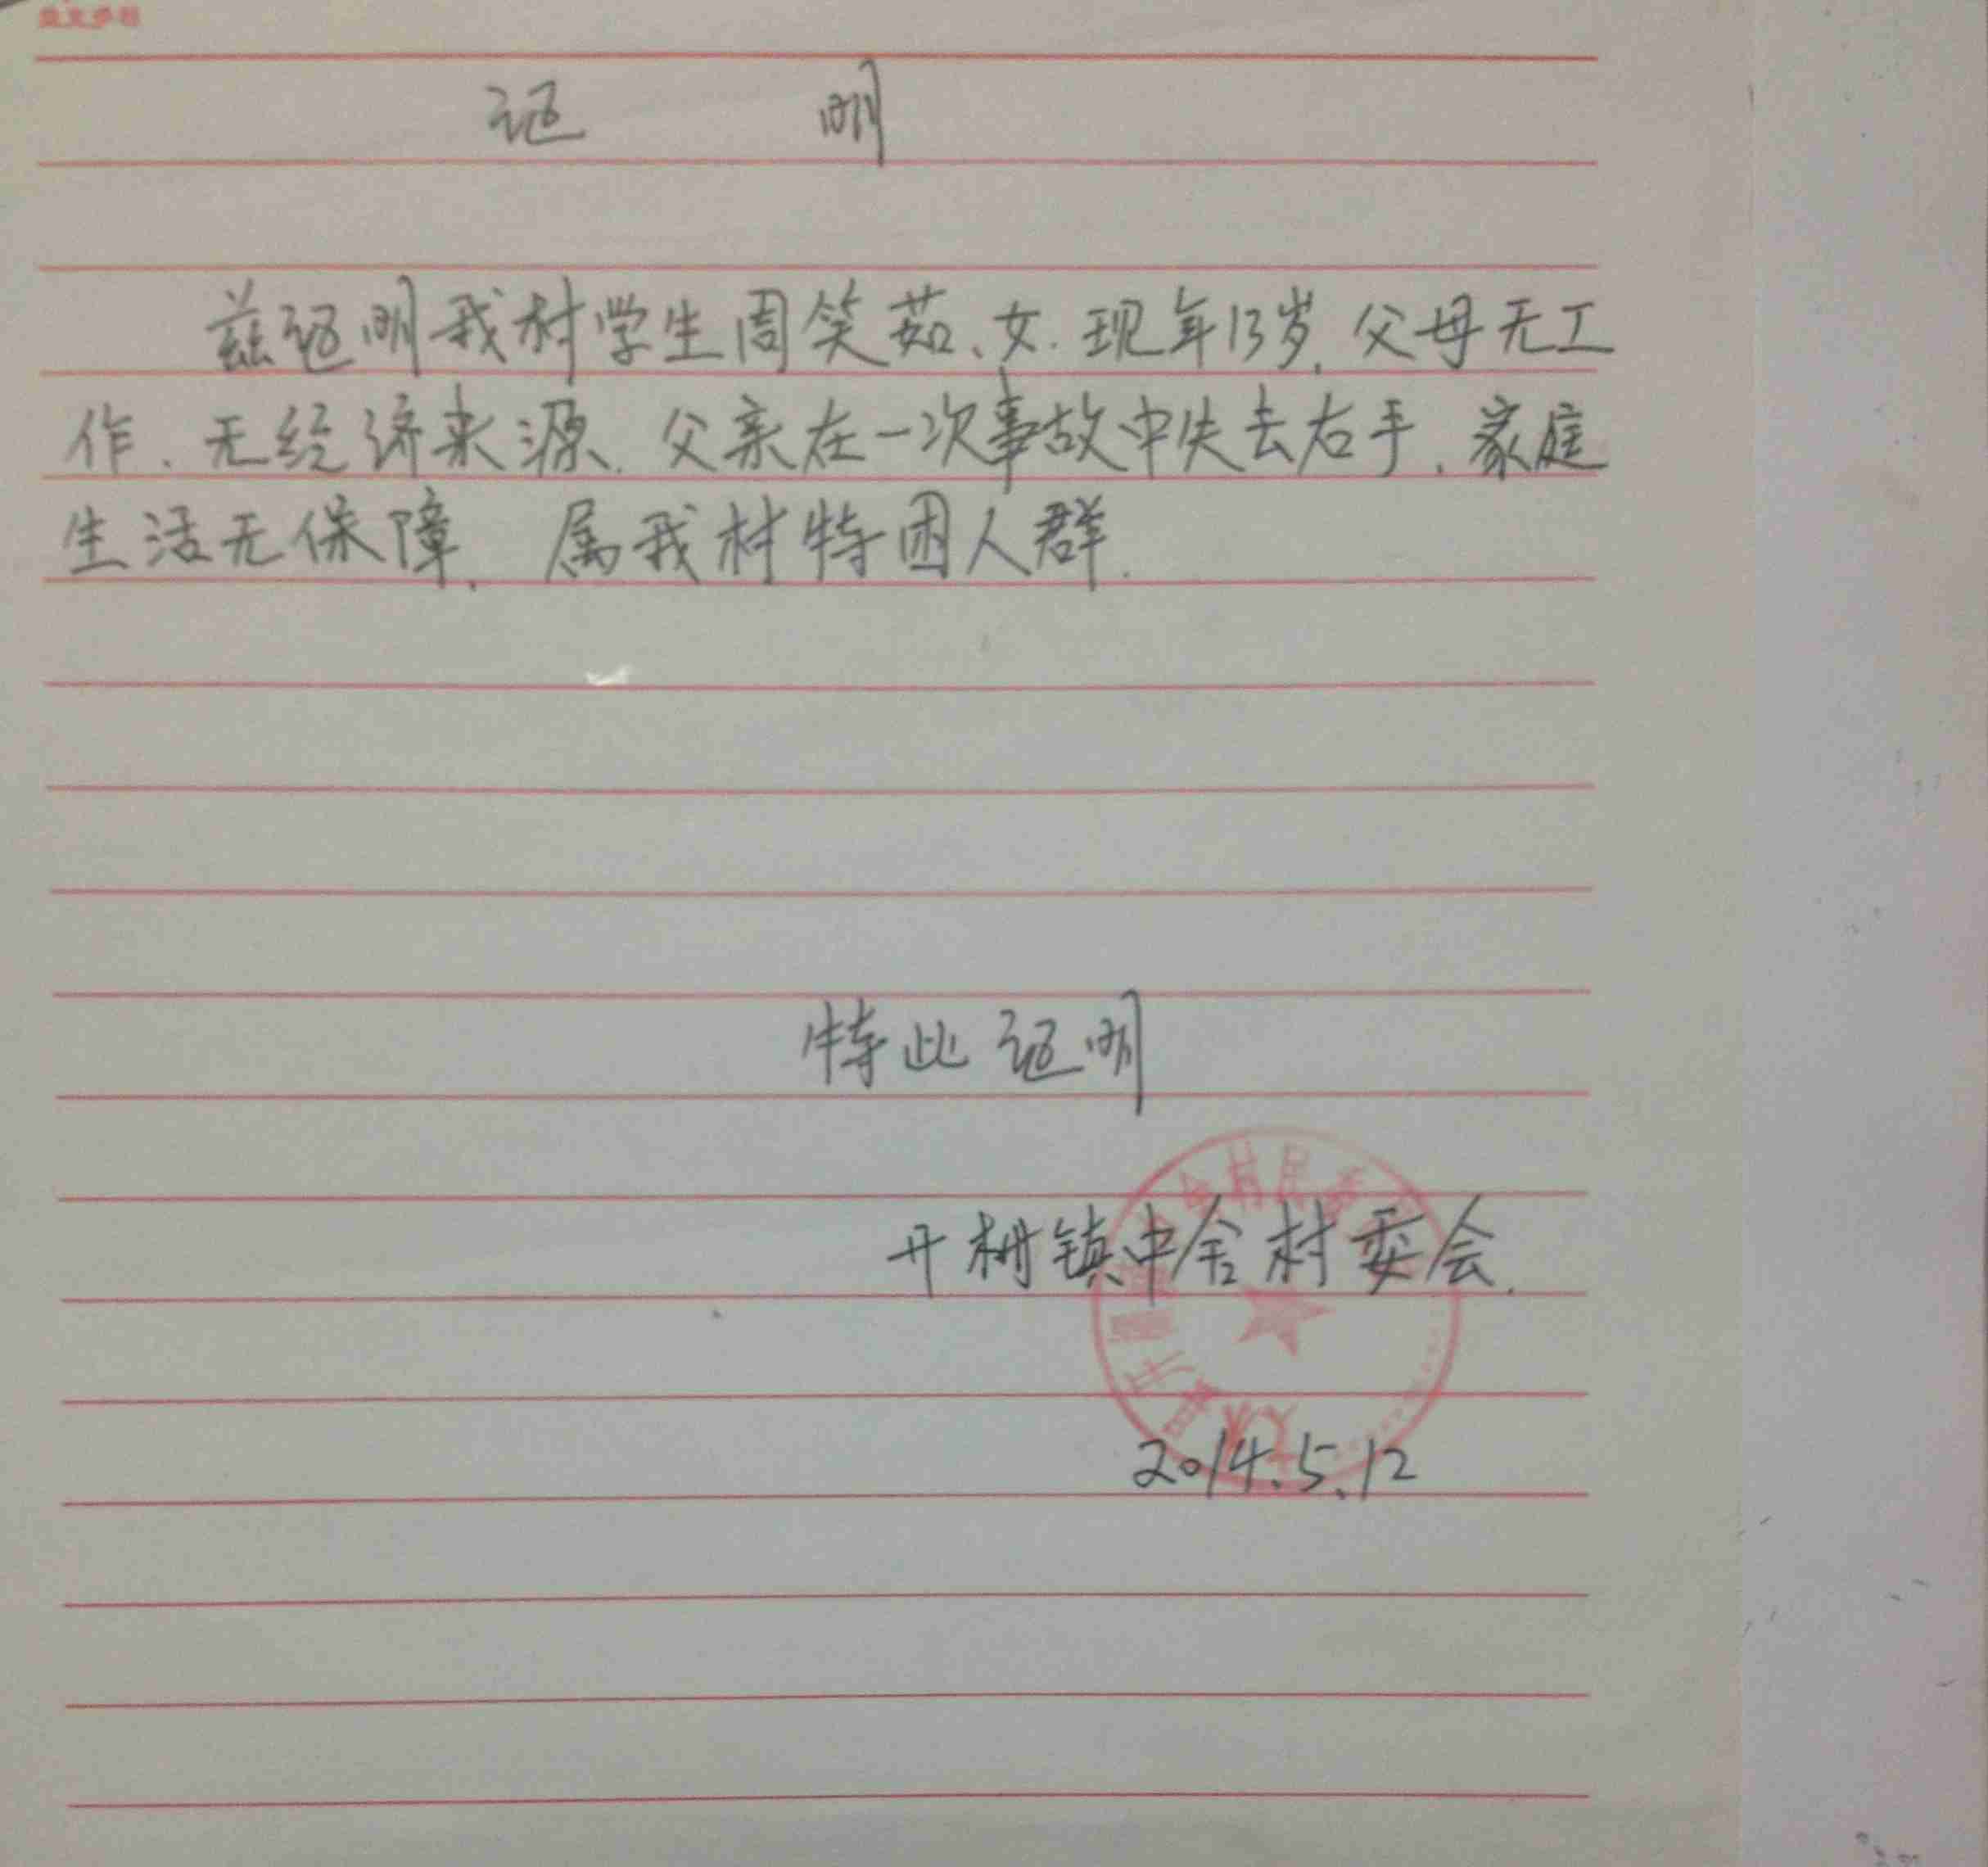 证 明
兹证明我村学生周笑茹、女.现年13岁,父母无工
作.无经济来源.父亲在一次事故中失去右手.家庭
生活无保障.属我村特困人群.
特此证明
村民委
镇中舍村委会.
2014.5.12